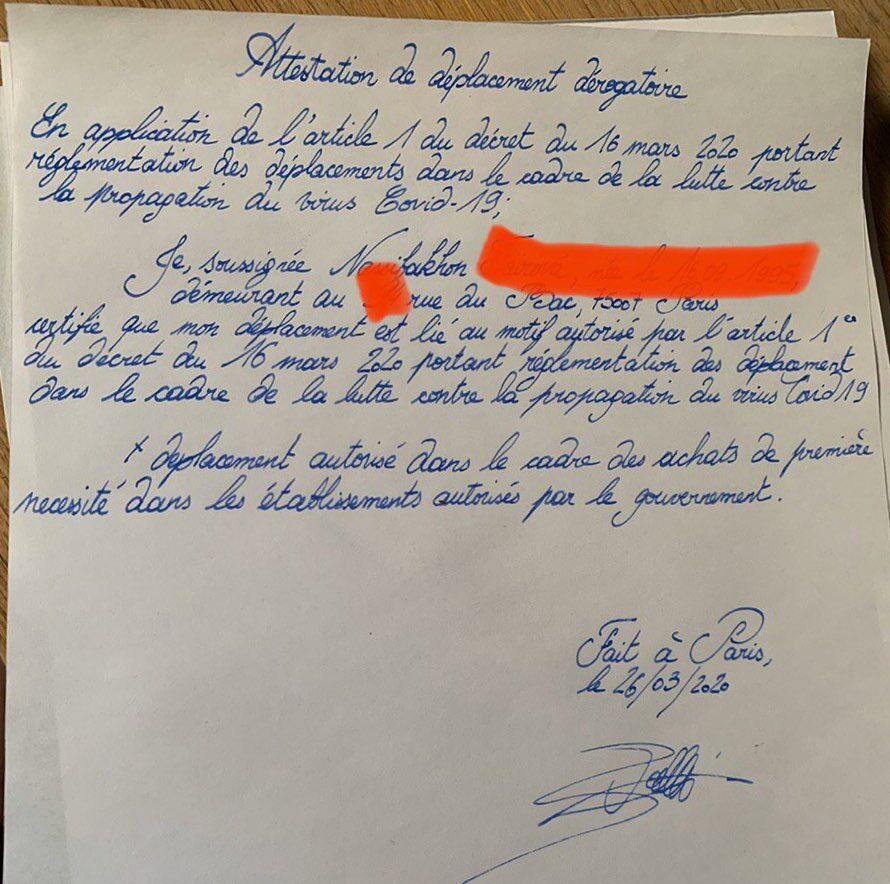 Attestation de déplacement dérogatoire
En application de l'article 1 du décret du 16 mars 2020 portant
réglementation des déplacements dans le cadre de la lutte contre
la propagation du virus Covid-19;
Je, soussignée
démeurant au rue du Bac, 75007 Paris
certifie que mon déplacement est lié au motif autorisé par l'article 1er
du décret du 16 mars 2020 portant réglementation des déplacement
dans le cadre de la lutte contre la propagation du virus Covid 19
x déplacement autorisé dans le cadre des achats de première
necessité dans les établissements autorisés par le gouvernement.
Fait à Paris,
le 26/03/2020